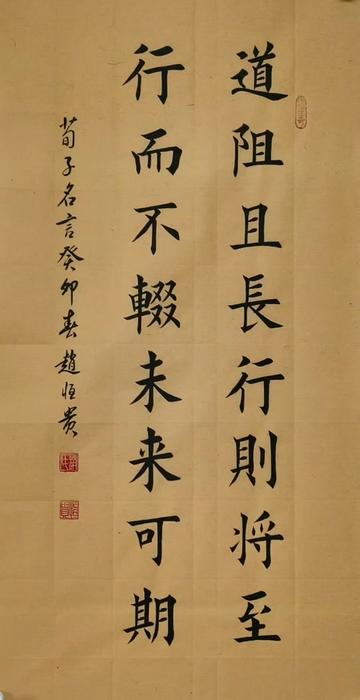 道阻且長行則将至
行而不輟未来可期
荀子名言癸卯春趙恒贵